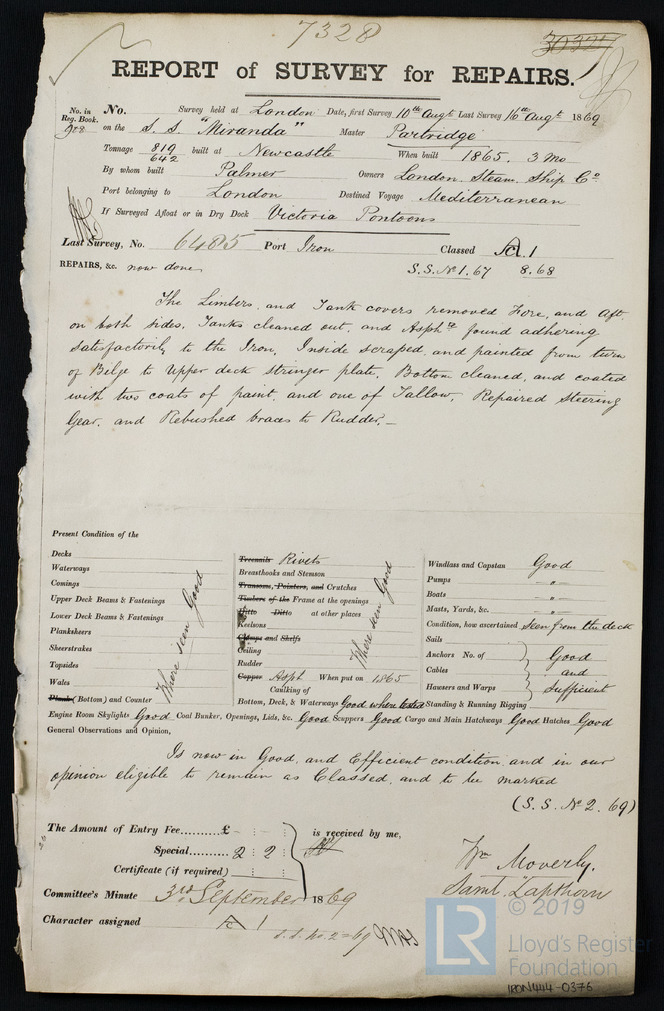 7328
30325
REPORT of SURVEY for REPAIRS.
No. in Reg. Book. No. Survey held at London Date, first Survey 10th Augt Last Survey 16th Augt 1869
on the S. S. "Miranda" Master Partridge
Tonnage 819 642 built at Newcastle When built 1865. 3 mo
By whom built Palmer Owners London Steam Ship Co.
Port belonging to London Destined Voyage Mediterranean
If Surveyed Afloat or in Dry Dock Victoria Pontoons
Last Survey, No. 6485 Port Iron Classed A 1
REPAIRS, &c. now done S.S. No 1. 67 8.68
The Limbers, and Tank covers removed Fore, and Aft.
on both sides. Tanks cleaned out, and Asphte found adhering
satisfactorily to the Iron, Inside scraped, and painted from turn
of Bilge to Upper deck stringer plate. Bottom cleaned, and coated
with two coats of paint, and one of Tallow. Repaired Steering
Gear, and Rebushed braces to Rudder.—
Present Condition of the
Decks
Waterways
Comings
Upper Deck Beams & Fastenings
Lower Deck Beams & Fastenings
Planksheers
Sheerstrakes
Topsides
Wales
Plank (Bottom) and Counter
Where seen Good
Treenails Rivets
Breasthooks and Stemson
Transoms, Pointers, and Crutches
Timbers of the Frame at the openings
Ditto Ditto at other places
Keelsons
Clamps and Shelfs
Ceiling
Rudder
Copper Asph When put on 1865
Caulking of
Bottom, Deck, & Waterways Good when tested
Where seen Good
Windlass and Capstan Good
Pumps -"-
Boats -"-
Masts, Yards, &c. -"-
Condition, how ascertained seen from the deck
Sails
Anchors No. of Good
Cables and
Hawsers and Warps Sufficient
Standing & Running Rigging
Engine Room Skylights Good Coal Bunker, Openings, Lids, &c. Good Scuppers Good Cargo and Main Hatchways Good Hatches Good
General Observations and Opinion,
Is now in Good, and Efficient condition, and in our
opinion eligible to remain as Classed, and to be marked
(S. S. No 2. 69)
The Amount of Entry Fee..........£ - : - : is received by me,
Special.......... 2 : 2 :
Certificate (if required)
Wm Moverly.
Saml. Lapthorn
Committee's Minute 3rd September 1869
Character assigned A 1
S. S. No. 2 = 69
© 2019
LR
Lloyd's Register
Foundation
IRON444-0376